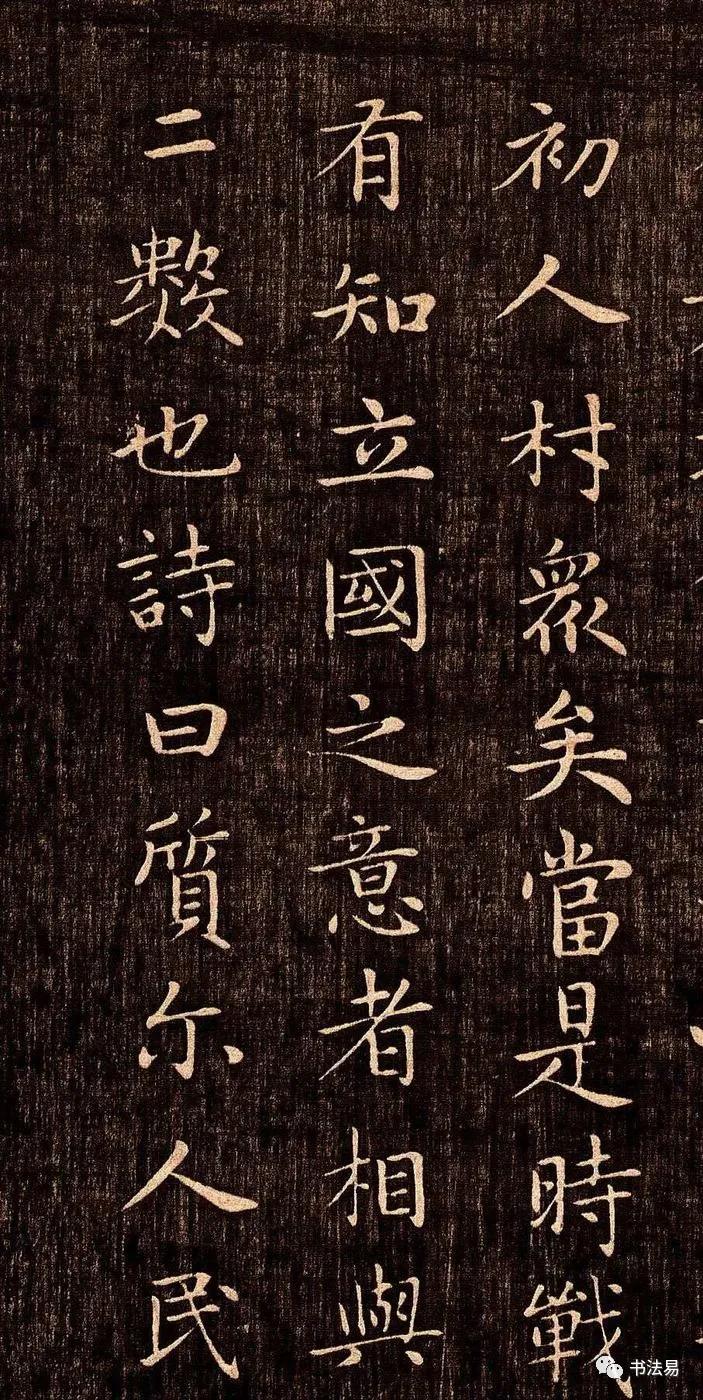 初人材眾矣當是時戰
有知立國之意者相與
二數也詩曰質尔人民
书法易